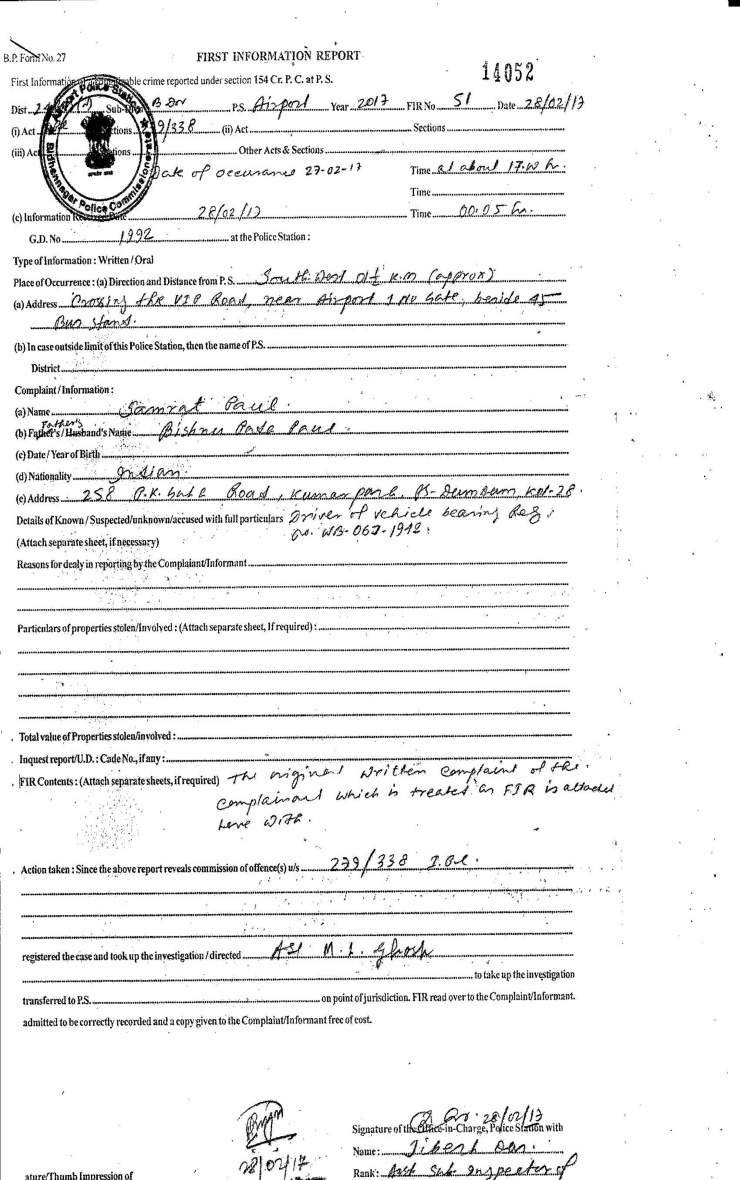 B.P. Form No. 27
FIRST INFORMATION REPORT
14052
First Information of cognizable crime reported under section 154 Cr. P. C. at P. S.
Dist Sub- BDN P.S. Airport Year 2017 FIR No 51 Date 28/02/17
(i) Act Sections 9/338 (ii) Act Sections
(iii) Act Sections Other Acts & Sections
Airport Police Station
Bidhannagar Police Commissionerate
Date of occurance 27-02-17 Time at about 17.40 hr.
Time
(c) Information Received Date 28/02/17 Time 00:05 hr.
G.D. No 1992 at the Police Station :
Type of Information : Written / Oral
Place of Occurrence : (a) Direction and Distance from P. S. South-West K.M (approx)
(a) Address Crossing the VIP Road, near Airport 1 No Gate, beside 45
Bus stand.
(b) In case outside limit of this Police Station, then the name of P.S.
District
Complaint / Information :
(a) Name Samrat Paul.
Father's
(b) Father's / Husband's Name Bishnu Pada Paul.
(c) Date / Year of Birth
(d) Nationality Indian.
(e) Address 258 P.K. Guha Road, Kumarpara, PS- Dumdum, Kol-28.
Details of Known / Suspected/unknown/accused with full particulars Driver of vehicle bearing Reg.
no. WB-06J-1942.
(Attach separate sheet, if necessary)
Reasons for dealy in reporting by the Complaiant/Informant
Particulars of properties stolen/Involved : (Attach separate sheet, If required) :
Total value of Properties stolen/involved :
Inquest report/U.D. : Code No., if any :
FIR Contents : (Attach separate sheets, if required) The original written complaint of the
complainant which is treated as FIR is attached
here with.
Action taken : Since the above report reveals commission of offence(s) u/s 279/338 I.P.C.
registered the case and took up the investigation / directed ASI M. L. Ghosh
to take up the investigation
transferred to P.S. on point of jurisdiction. FIR read over to the Complaint/Informant.
admitted to be correctly recorded and a copy given to the Complaint/Informant free of cost.
28/02/17
Signature of the Office-in-Charge, Police Station with
28/02/17
Name : Jibesh Das.
ature/Thumb Impression of
Rank : Asst Sub Inspector of